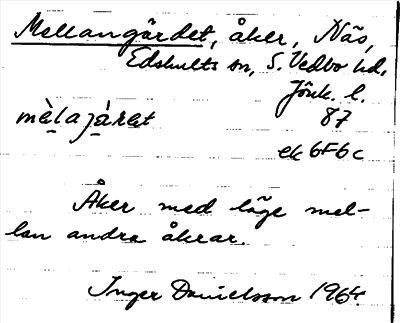 Mellangärdet, åker, Näs,
Edshults sn, S. Vedbo hd,
Jönk. l.
mèlajàrat 87
ek 6F6c
Åker med läge mel-
lan andra åkrar.
Inger Danielsson 1964.